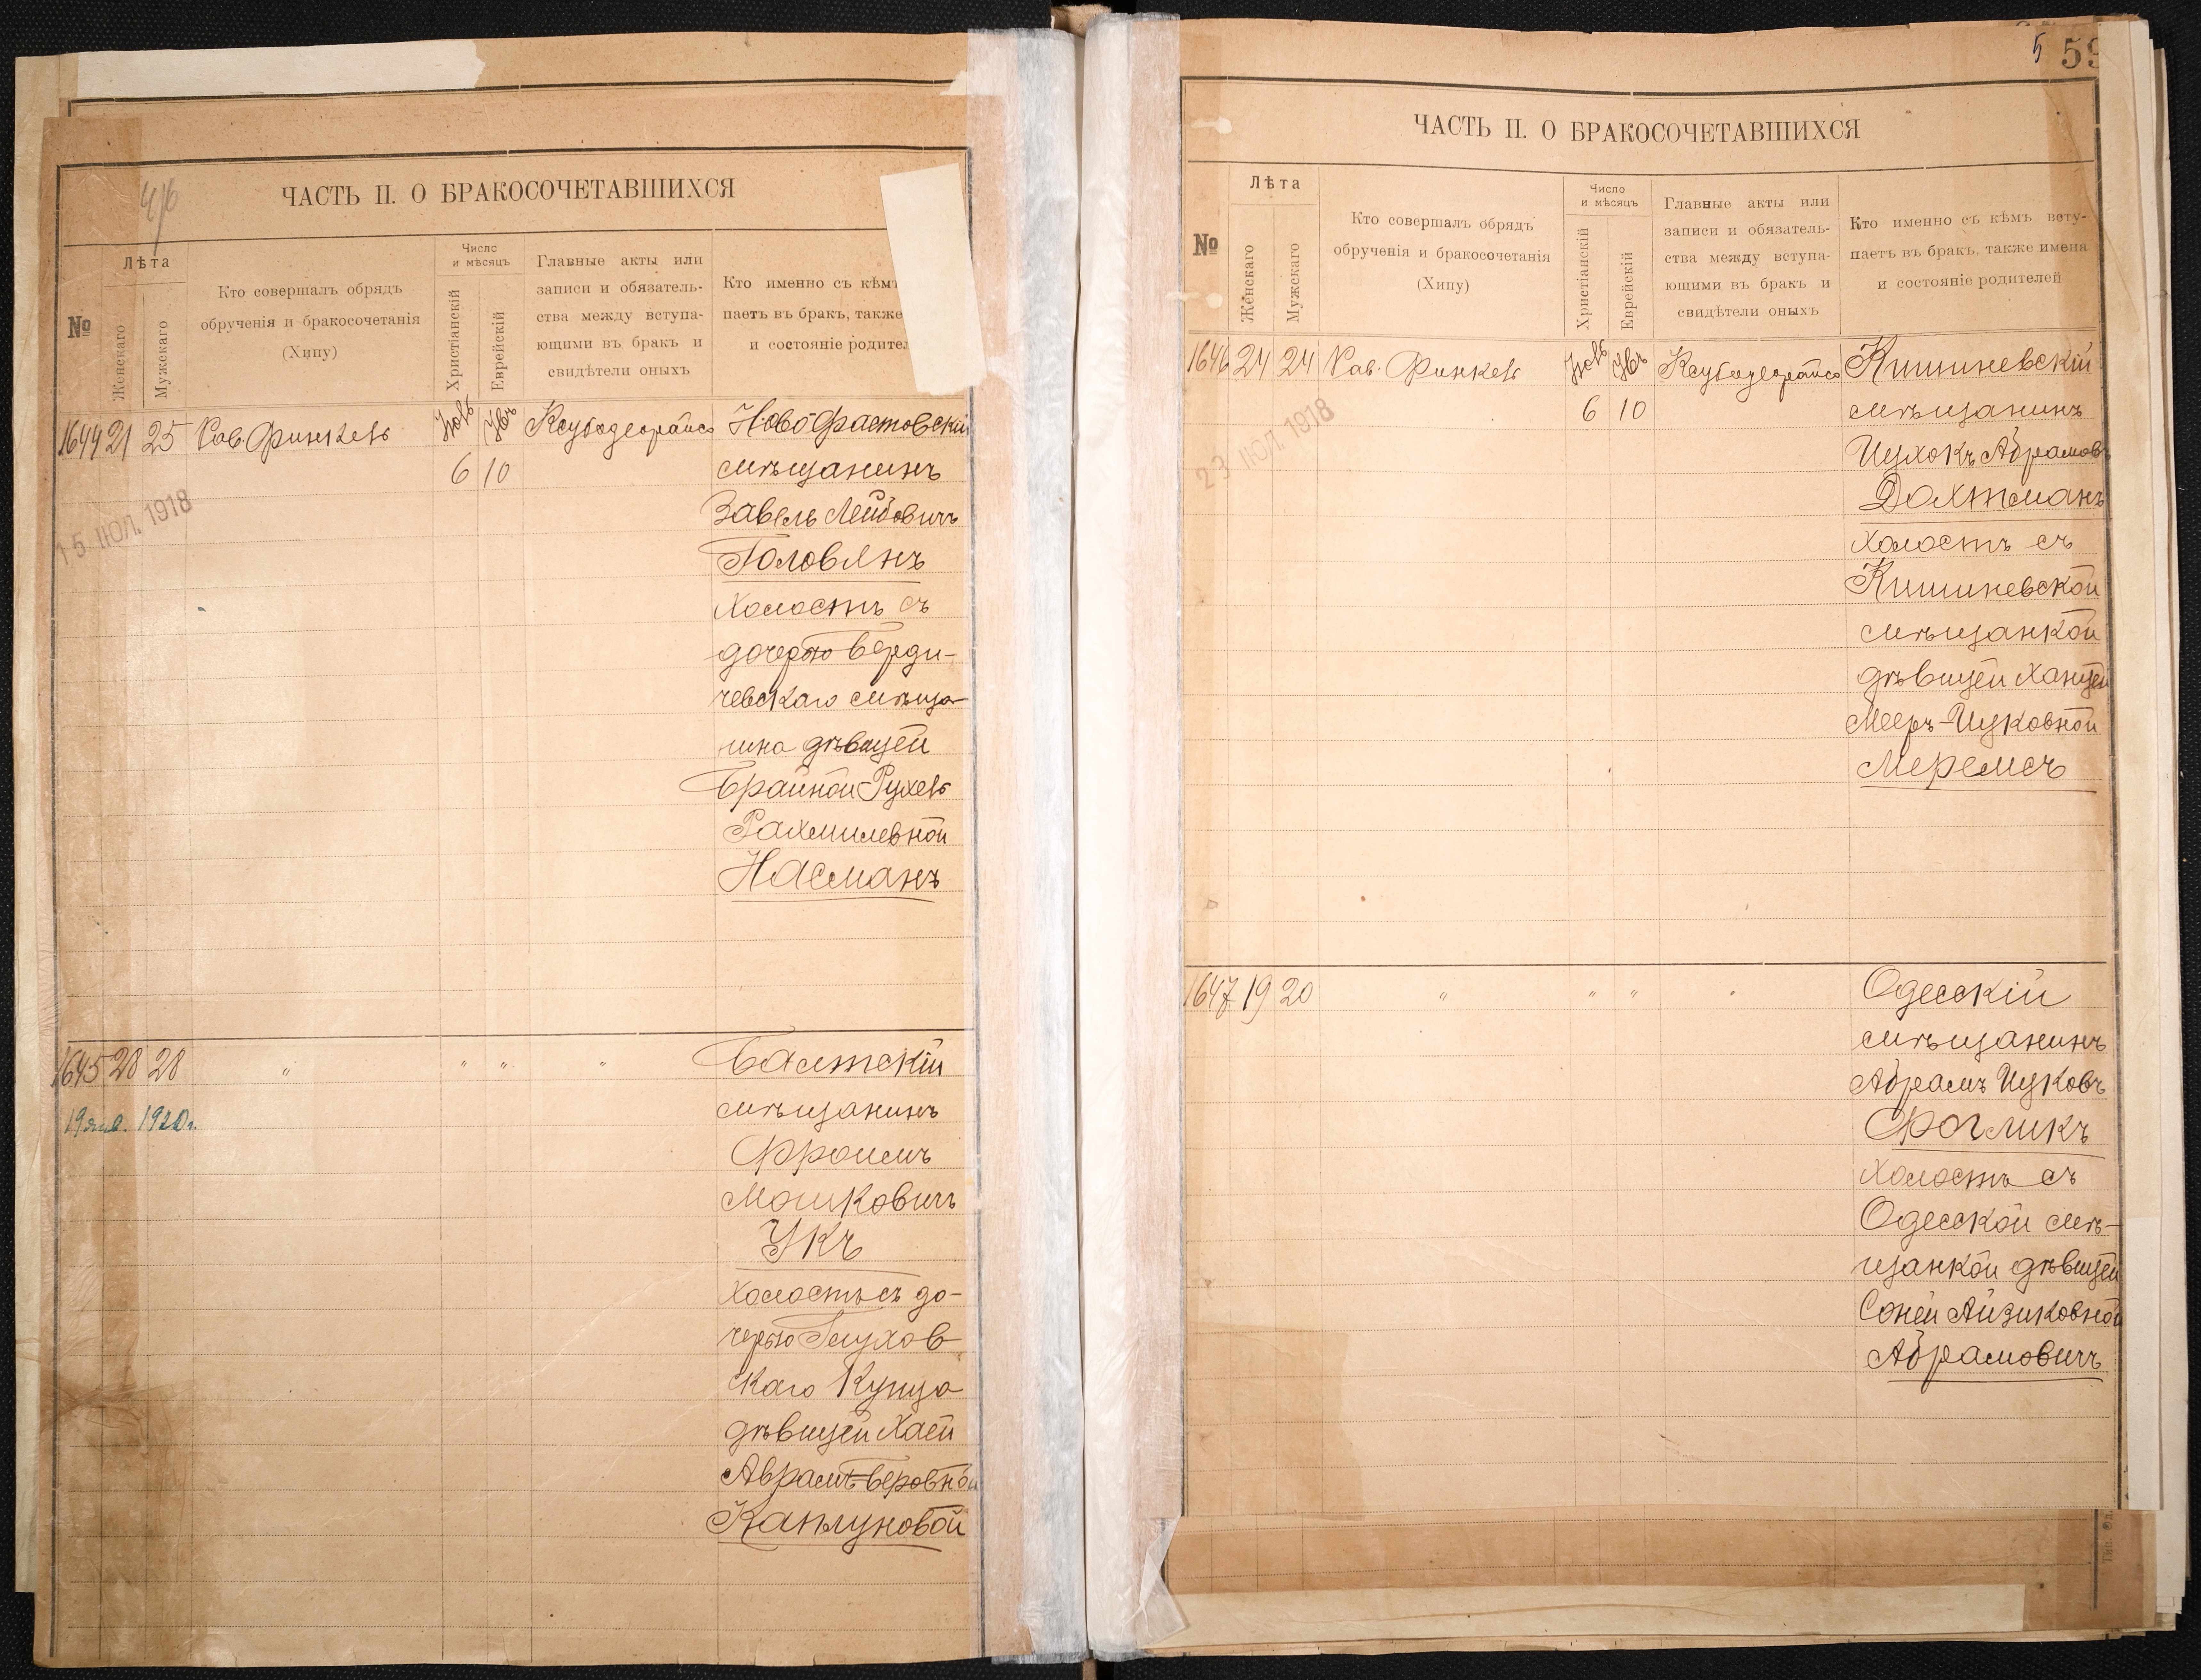 4/6
ЧАСТЬ II. О БРАКОСОЧЕТАВШИХСЯ
№
Лѣта
Женскаго
Мужскаго
Кто совершалъ обрядъ
обрученія и бракосочетанія
(Хипу)
Число
и мѣсяцъ
Христіанскій
Еврейскій
Главные акты или
записи и обязатель-
ства между вступа-
ющими въ бракъ и
свидѣтели оныхъ
Кто именно съ кѣмъ
паетъ въ бракъ, также
и состояніе родител
1644 21 25 Рав. Финкель
6 10
15 ІЮЛ. 1918
Новофастовскій
мѣщанинъ
Завель Лейбовичъ
Головянъ
холостъ съ
дочерью Верди-
чевскаго мѣща-
нина дѣвицей
Брайной Рухель
Рахмилевной
Насманъ
1645 28 28 " " " "
19 янв. 1920г.
Балтскій
мѣщанинъ
Фроимъ
Мошковичъ
Укъ
холостъ съ до-
черью Глухов
скаго купца
дѣвицей Хаей
Аврамъ-Беровной
Каплуновой
5 59
ЧАСТЬ II. О БРАКОСОЧЕТАВШИХСЯ
№
Лѣта
Женскаго
Мужскаго
Кто совершалъ обрядъ
обрученія и бракосочетанія
(Хипу)
Число
и мѣсяцъ
Христіанскій
Еврейскій
Главные акты или
записи и обязатель-
ства между вступа-
ющими въ бракъ и
свидѣтели оныхъ
Кто именно съ кѣмъ всту-
паетъ въ бракъ, также имена
и состояніе родителей
1646 24 24 Рав. Финкель
6 10
23 ІЮЛ. 1918
Кишиневскій
мѣщанинъ
Ицхокъ Абрамов
Дохтманъ
холостъ съ
Кишиневской
мѣщанкой
дѣвицей Ханцей
Мееръ-Ицковной
Меремсъ
1647 19 20 " " " "
Одесскій
мѣщанинъ
Абрамъ Ицковъ
Фогликъ
холостъ съ
Одесской мѣ-
щанкой дѣвицей
Соней Айзиковной
Абрамовичъ